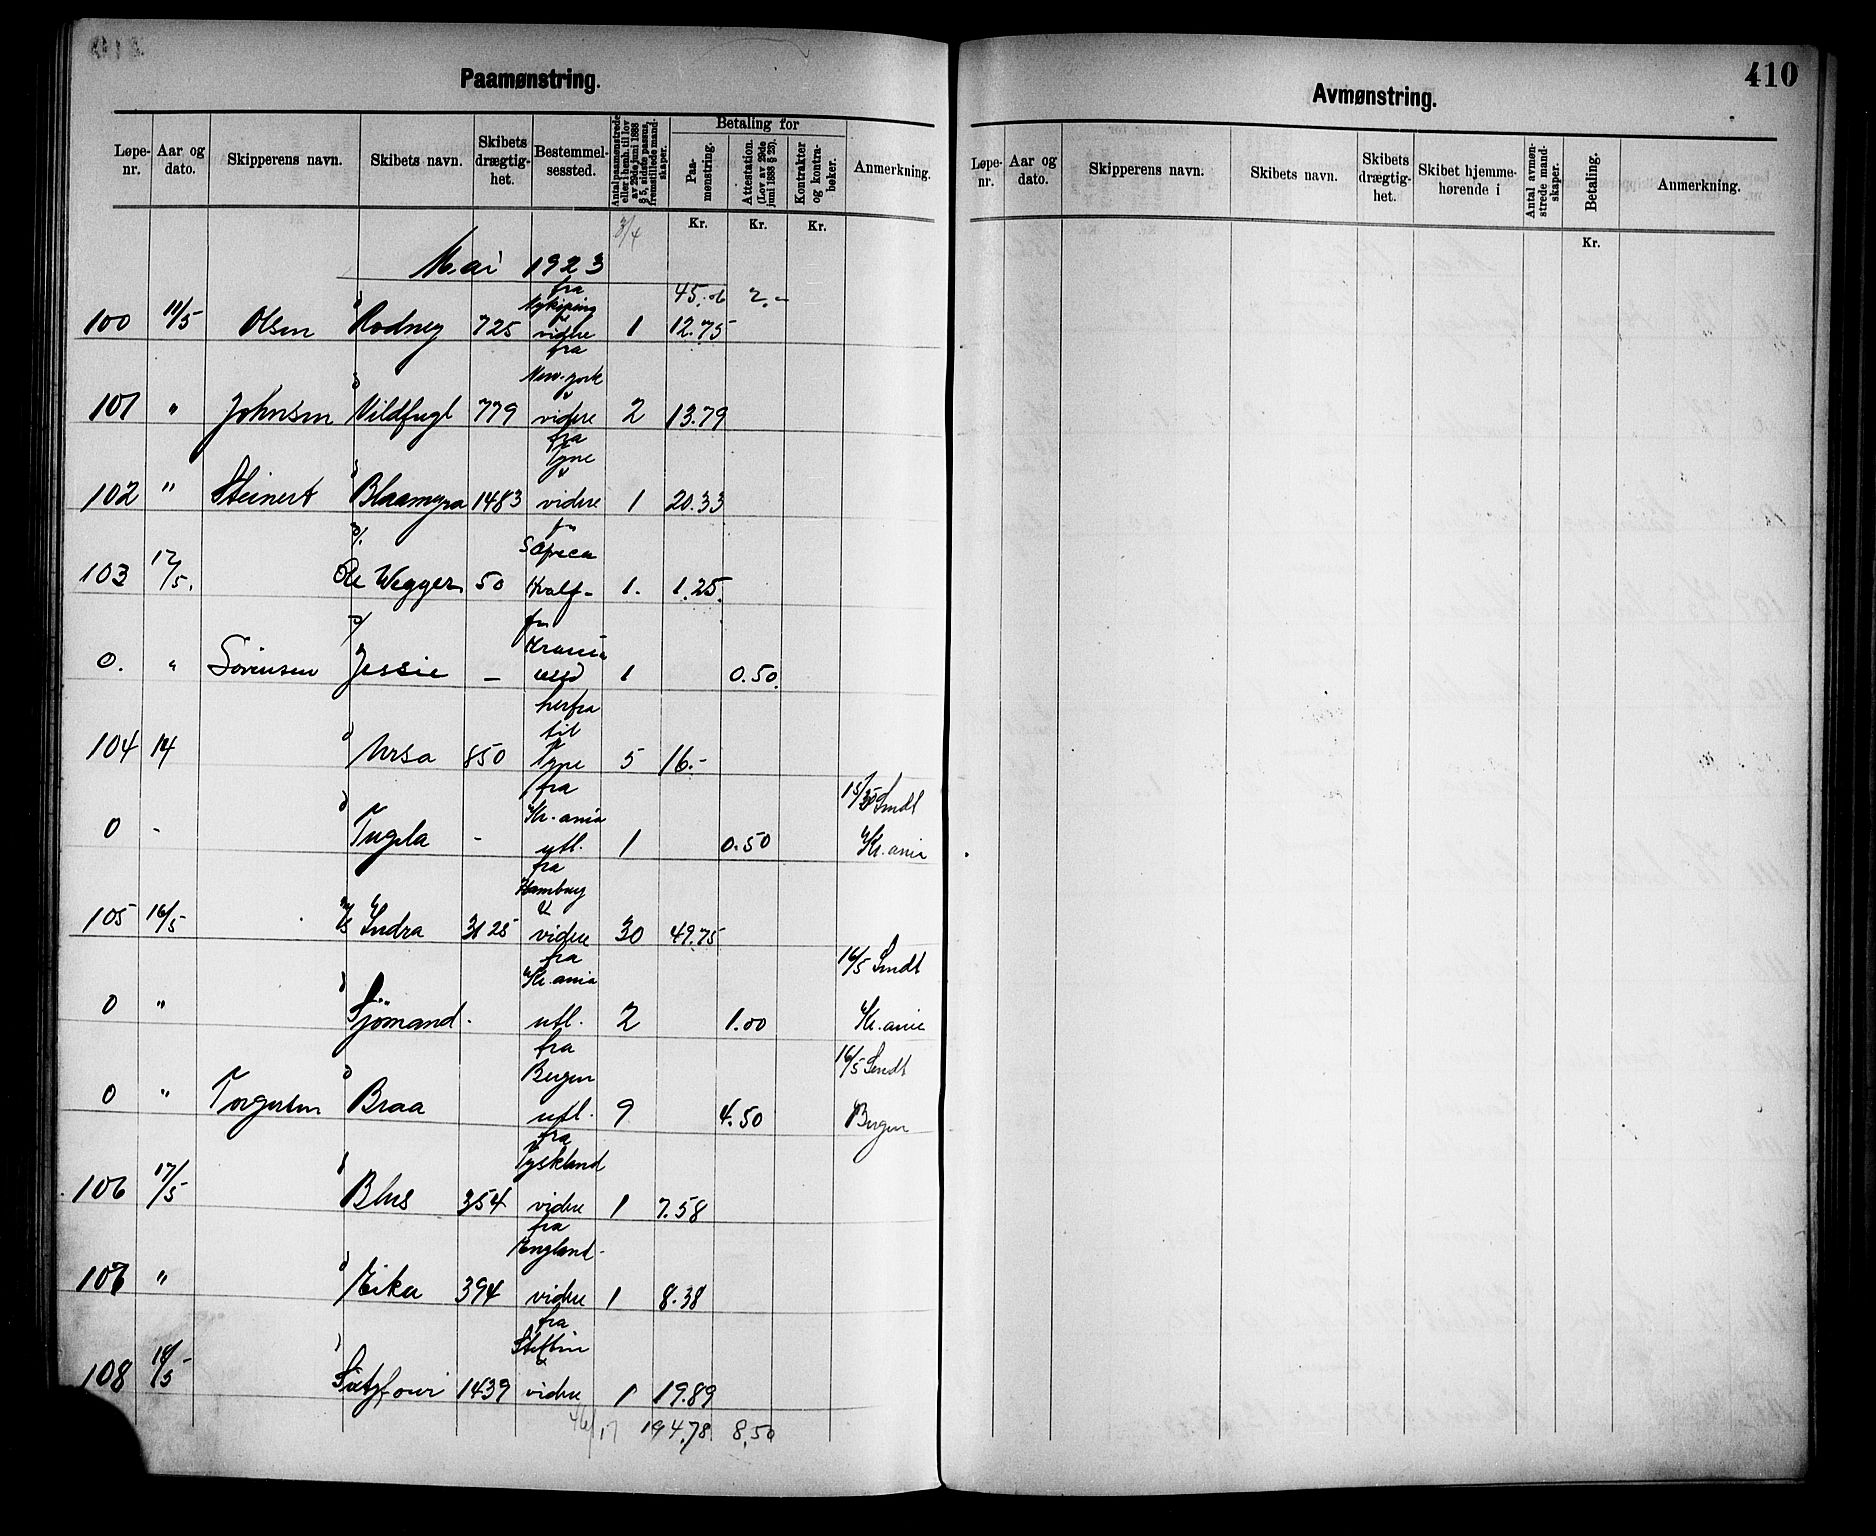 410
Paamønstring.
Løpe-nr. Aar og dato. Skipperens navn. Skibets navn. Skibets drægtig-het. Bestemmel-sessted. Antal paamønstrede eller i henh. til lov av 29de juni 1888 § 5, sidste passus, fremstillede mand-skaper. Betaling for Paa-mønstring. Attestation. (Lov av 29de juni 1888 § 29). Kontrakter og kontra-bøker. Anmerkning.
Kr. Kr. Kr.
3/4
Mai 1923
45.06 2.-
100 11/5 Olsen Rodney 725 fra Nykjøping videre 1 12.75
101 " Johnsen Vildfugl 779 fra New-york videre 2 13.79
102 " Steinert Blaamyra 1483 fra Tyne videre 1 20.33
103 12/5. Ole Wegger 50 Hvalf- 1. 1.25.
0. " Sørensen Jessie - fra Krania 1 0.50
104 14 Ursa 850 herfra til Tyne 5 16.-
0 - Tugela - fra Kr.ania utl. 1 0.50 15/5 Sendt Kr.ania
105 16/5 M/S Indra 3125 fra Hamburg & videre 30 49.75
0 " Sjömand - fra Kr.ania utl. 2 1.00 16/5 Sendt Kr.ania
0 " Torgersen Braa fra Bergen utl. 9 4.50 16/5 Sendt Bergen
106 17/5 Blus 354 fra Tyskland videre 1 7.58
107 " Eika 394 fra England videre 1 8.38
108 18/5 Sixtyfour 1439 fra Stettin videre 1 19.89
46/17 194.78 8.50
Avmønstring.
Løpe-nr. Aar og dato. Skipperens navn. Skibets navn. Skibets drægtig-het. Skibet hjemme-hørende i Antal avmøn-strede mand-skaper. Betaling. Anmerkning.
Kr.